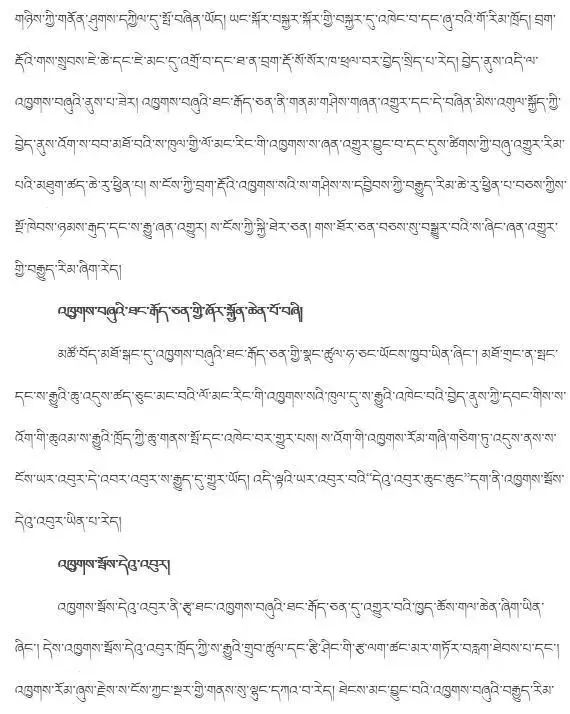 གཉིས་ཀྱི་གནོན་ཤུགས་དཀྱིལ་དུ་སྤོ་བཞིན་ཡོད། ཡང་སྐོར་བསྐྱར་སྐོར་གྱི་བསྐྱར་དུ་འཁེང་བ་དང་ཞུ་བའི་གོ་རིམ་ཁྲོད། བྲག་
རྡོའི་གས་སྲུབས་ཇེ་ཆེ་དང་ཇེ་མང་དུ་འགྲོ་བ་དང་ཐ་ན་བྲག་རྡོ་སོ་སོར་ཁ་ཕྲལ་བར་བྱེད་སྲིད་པ་རེད། བྱེད་ནུས་འདི་ལ་
འཁྱགས་བཞུའི་ནུས་པ་ཟེར། འཁྱགས་བཞུའི་ཐང་རྒོད་ཅན་ནི་གནམ་གཤིས་གཞན་འགྱུར་དང་དེ་བཞིན་མིས་འགུལ་སྐྱོད་ཀྱི་
བྱེད་ནུས་འོག་ས་བབ་མཐོ་བའི་ས་ཁུལ་གྱི་ལོ་མང་རིང་གི་འཁྱགས་ས་ཞན་འགྱུར་བྱུང་བ་དང་དུས་ཚིགས་ཀྱི་བཞུ་འགྱུར་རིམ་
པའི་མཐུག་ཚད་ཆེ་རུ་ཕྱིན་པ། ས་ངོས་ཀྱི་བྲག་རྡོའི་འཁྱགས་སའི་ས་གཤིས་ས་དབྱིབས་ཀྱི་བརྒྱུད་རིམ་ཆེ་རུ་ཕྱིན་པ་བཅས་ཀྱིས་
སྔོ་ཁེབས་ཉམས་རྒུད་དང་ས་རྒྱུ་ཞན་འགྱུར། ས་ངོས་ཀྱི་སྐྱི་ཐེར་ཅན། གས་ཐོར་ཅན་བཅས་སུ་བསྒྱུར་བའི་ས་ཞིང་ཞན་འགྱུར་
གྱི་བརྒྱུད་རིམ་ཞིག་རེད།
འཁྱགས་བཞུའི་ཐང་རྒོད་ཅན་གྱི་ཞོར་སྐྱོན་ཆེན་པོ་བཞི།
མཚོ་བོད་མཐོ་སྒང་དུ་འཁྱགས་བཞུའི་ཐང་རྒོད་ཅན་གྱི་སྣང་ཚུལ་ཧ་ཅང་ཡོངས་ཁྱབ་ཡིན་ཞིང་། མཐོ་གྲང་ན་སྤང་
དང་ས་རྒྱུའི་ཆུ་འདུས་ཚད་ཅུང་མང་བའི་ལོ་མང་རིང་གི་འཁྱགས་སའི་ཁུལ་དུ་ས་རྒྱུའི་འཁེང་བའི་བྱེད་ནུས་ཀྱི་དབང་གིས་ས་
འོག་གི་ཆུའམ་ས་རྒྱུའི་ཁྲོད་ཀྱི་ཆུ་གནས་སྤོ་དང་འཁེང་བར་གྱུར་པས། ས་འོག་གི་འཁྱགས་རོམ་གཞི་གཅིག་ཏུ་འདུས་ནས་ས་
ངོས་ཡར་འབུར་དེ་འབར་འབུར་ས་རྒྱུད་དུ་གྱུར་ཡོད། འདི་ལྟའི་ཡར་འབུར་བའི“དེའུ་འབུར་ཆུང་ཆུང”དག་ནི་འཁྱགས་སྦོས་
དེའུ་འབུར་ཡིན་པ་རེད།
འཁྱགས་སྦོས་དེའུ་འབུར།
འཁྱགས་སྦོས་དེའུ་འབུར་ནི་རྩྭ་ཐང་འཁྱགས་བཞུའི་ཐང་རྒོད་ཅན་དུ་འགྱུར་བའི་ཁྱད་ཆོས་གལ་ཆེན་ཞིག་ཡིན་
ཞིང་། དེས་འཁྱགས་སྦོས་དེའུ་འབུར་ཁྲོད་ཀྱི་ས་རྒྱུའི་གྲུབ་ཚུལ་དང་རྩི་ཤིང་གི་རྩ་ལག་ཚང་མར་གཏོར་བརླག་ཐེབས་པ་དང་།
འཁྱགས་རོམ་ཞུས་རྗེས་ས་ངོས་ཀྱང་སྔར་གྱི་གནས་སུ་ལྷུང་དཀའ་བ་རེད། ཐེངས་མང་བྱུང་བའི་འཁྱགས་བཞུའི་བརྒྱུད་རིམ་